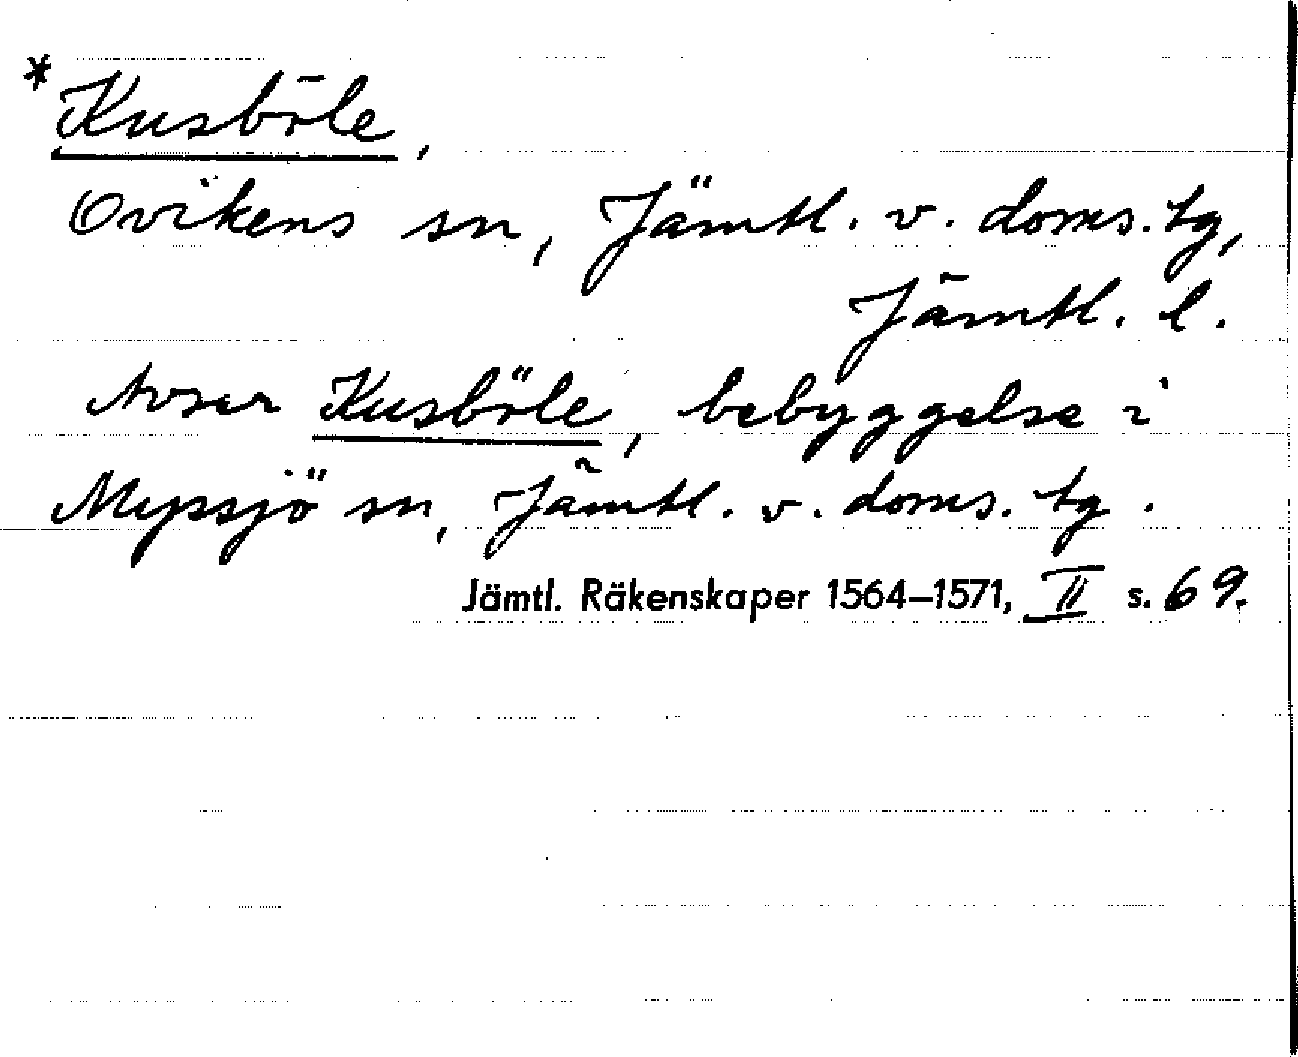 *Kusböle,
Ovikens sn, Jämtl. v. doms. tg,
Jämtl. l.
Avser Kusböle, bebyggelse i
Myssjö sn, Jämtl. v. doms. tg.
Jämtl. Räkenskaper 1564–1571, II s. 69.